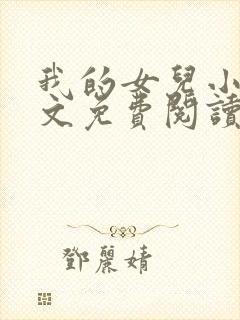 我的女兒小
文免費閱讀
鄧麗婧